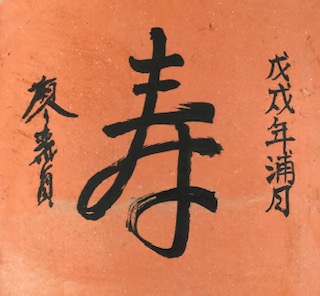 戊戌年浦月
寿